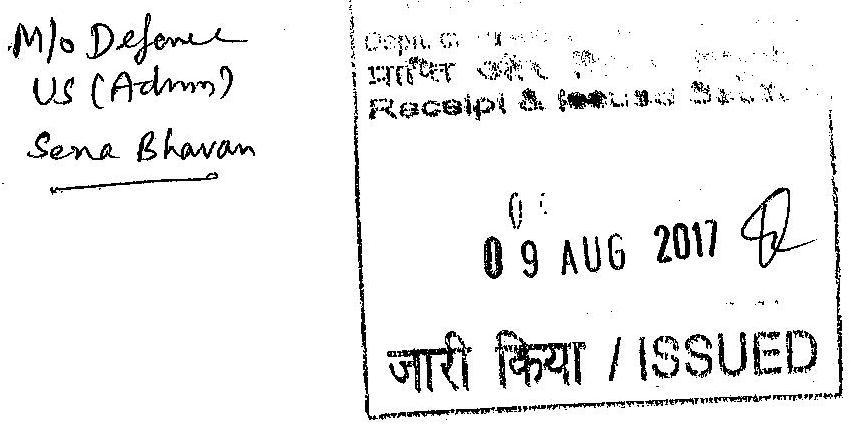 M/o Defence
US (Admn)
Sena Bhavan
Deptt. of
प्राप्ति और
Receipt & Issue
09 AUG 2017
जारी किया / ISSUED